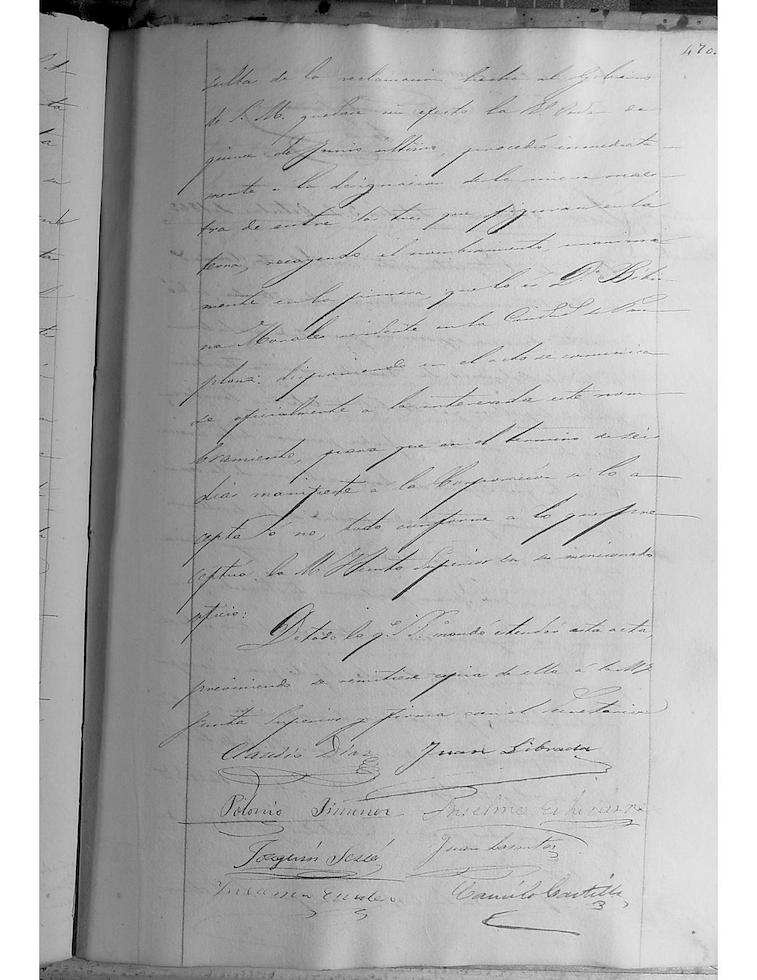 470.
sulta de la reclamacion hecha al Gobierno
de S. M. quedase sin efecto la Rl. orden de
quince de Junio ultimo, procedió inmediata
mente a la designacion de la nueva maes
tra de entre las tres que figuran en la
terna, recayendo el nombramiento unanime
mente en la primera, que lo es Dª. Bibia
na Morales residente en la Ciudad de Pam
plona: disponiendo en el acto se comunica
se oficialmente a la interesada este nom
bramiento, para que en el termino de seis
dias manifieste a la Corporacion si lo a
cepta ó no, todo conforme a lo que pre
ceptua la M. Y. Junta Superior en su mencionado
oficio:
De todo lo qe. mandó estender esta acta,
previniendo se remitiese copia de ella á la M. Y.
Junta Superior y firma con el Secretario
Claudio Diaz Juan Librada
Polonio Jimenez Anselmo Echavarri
Joaquin Sesé Juan
Camilo Castilla